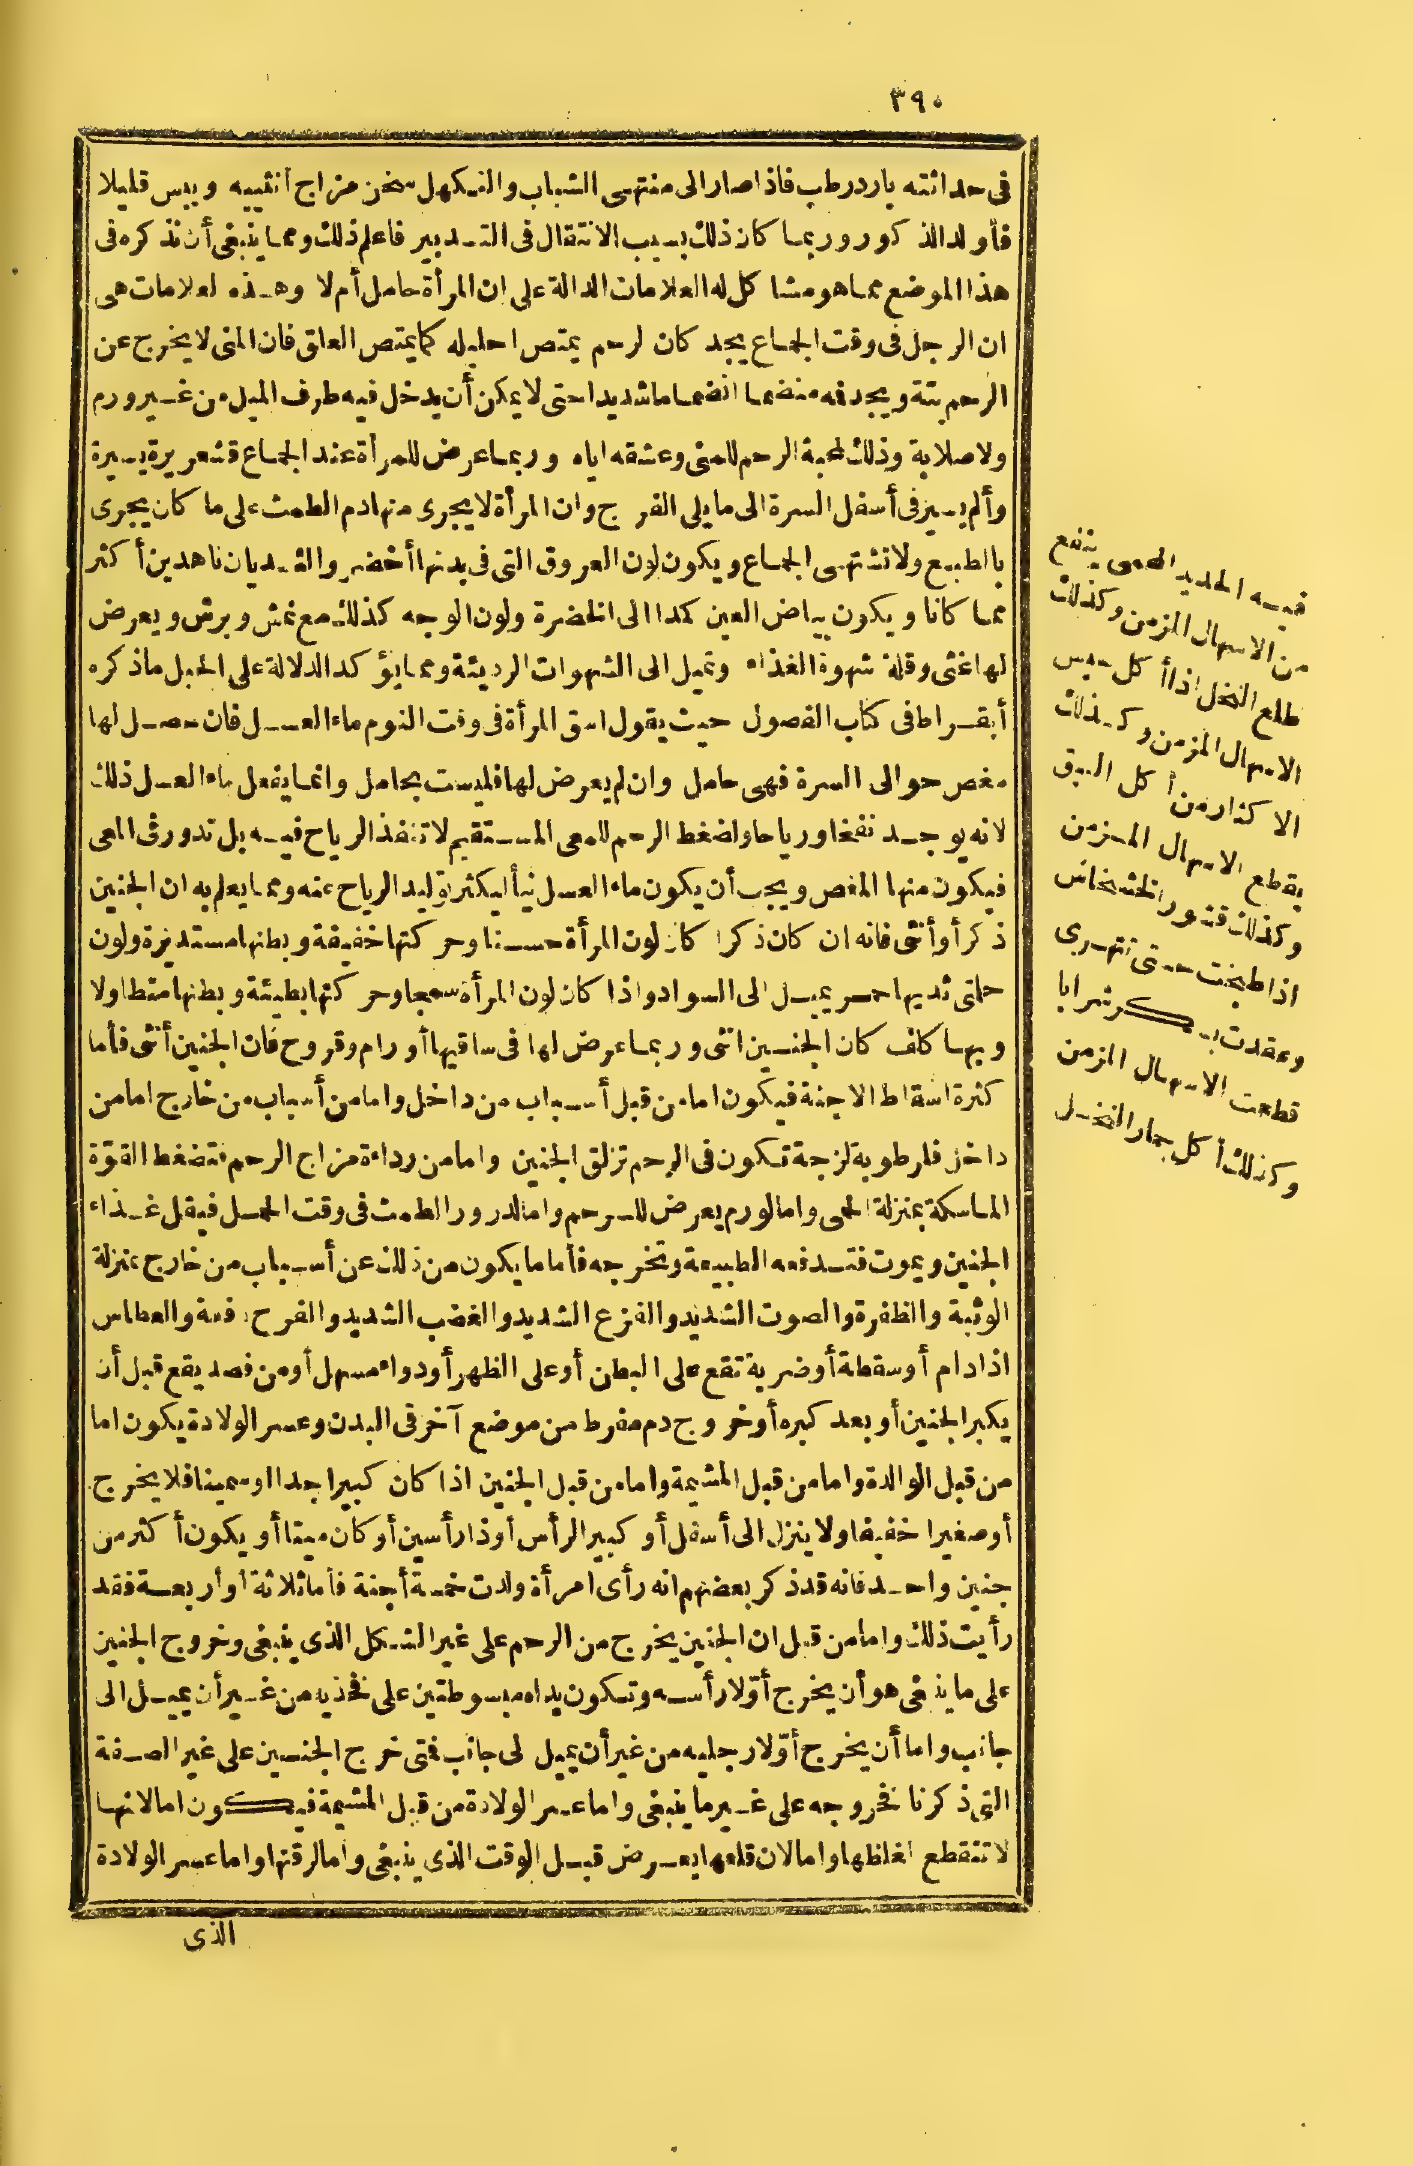 ٣٩٠
فى حداثته بارد رطب فاذا صار الى منتهى الشباب والتكهل سخن مزاج أنثييه ويبس قليلا
فأولد الذكور وربما كان ذلك بسبب الانتقال فى التدبير فاعلم ذلك ومما ينبغى أن نذكره فى
هذا الموضع مما هو مشاكل له العلامات الدالة على ان المرأة حامل أم لا وهذه لعلامات هى
ان الرجل فى وقت الجماع يجد كان لرحم يمتص احليله كما يمتص العلق فان المنى لا يخرج عن
الرحم بتة ويجد فه منضما انضماما شديدا حتى لا يمكن أن يدخل فيه طرف الميل من غير ورم
ولا صلابة وذلك لمحبة الرحم للمنى وعشقه اياه وربما عرض للمرأة عند الجماع قشعريرة يسيرة
وألم يسير فى أسفل السرة الى ما يلى الفرج وان المرأة لا يجرى منها دم الطمث على ما كان يجرى
بالطبيع ولا تشتهى الجماع ويكون لون العروق التى فى بدنها أخضر والثديان ناهدين أكثر
مما كانا ويكون بياض العين كمدا الى الخضرة ولون الوجه كذلك مع نمش وبرش ويعرض
لها غثى وقلة شهوة الغذاء وتميل الى الشهوات الرديئة ومما يؤكد الدلالة على الحبل ما ذكره
أبقراط فى كتاب الفصول حيث يقول اسق المرأة فى وقت النوم ماء العسل فان حصل لها
مغص حوالى السرة فهى حامل وان لم يعرض لها فليست بحامل وانما يفعل ماء العسل ذلك
لانه يوجد نفخا ورياحا ولضغط الرحم للمعى المستقيم لا تنفذ الرياح فيه بل تدور فى المعى
فيكون منها المغص ويجب أن يكون ماء العسل نيأ ليكثر توليد الرياح عنه ومما يعلم به ان الجنين
ذكر أو أنثى فانه ان كان ذكرا كان لون المرأة حسنا وحركتها خفيفة وبطنها مستديرة ولون
حلمتى ثديها احمر يميل الى السواد واذا كان لون المرأة سمجا وحركتها بطيئة وبطنها متطاولا
وبها كلف كان الجنين انثى وربما عرض لها فى ساقيها أورام وقروح فان الجنين أنثى فأما
كثرة اسقاط الاجنة فيكون اما من قبل أسباب من داخل واما من أسباب من خارج اما من
داخل فلرطوبة لزجة تكون فى الرحم تزلق الجنين واما من رداءة مزاج الرحم فتضغط القوّة
الماسكة بمنزلة الحمى واما لورم يعرض للرحم واما لدرور الطمث فى وقت الحمل فيقل غذاء
الجنين ويموت فتدفعه الطبيعة وتخرجه فأما ما يكون من ذلك عن أسباب من خارج بمنزلة
الوثبة والظفرة والصوت الشديد والفزع الشديد والغضب الشديد والفرح دفعة والعطاس
اذا دام أو سقطة أو ضربة تقع على البطن أو على الظهر أو دواء مسهل أو من فصد يقع قبل أن
يكبر الجنين أو بعد كبره أو خروج دم مفرط من موضع آخر فى البدن وعسر الولادة يكون اما
من قبل الوالدة واما من قبل المشيمة واما من قبل الجنين اذا كان كبيرا جدا او سمينا فلا يخرج
أو صغيرا خفيفا ولا ينزل الى أسفل أو كبير الرأس أو ذا رأسين أو كان ميتا أو يكون أكثر من
جنين واحد فانه قد ذكر بعضهم انه رأى امرأة ولدت خمسة أجنة فأما ثلاثة أو أربعة فقد
رأيت ذلك واما من قبل ان الجنين يخرج من الرحم على غير الشكل الذى ينبغى وخروج الجنين
على ما ينبغى هو أن يخرج أوّلا رأسه وتكون يداه مبسوطتين على فخذيه من غير أن يميل الى
جانب واما أن يخرج أوّلا رجليه من غير أن يميل لى جانب فتى خرج الجنين على غير الصفة
التى ذكرنا فخروجه على غير ما ينبغى واما عسر الولادة من قبل المشيمة فيكون اما لانها
لا تنقطع لغلظها واما لان قلعها يعرض قبل الوقت الذى ينبغى واما لرقتها واما عسر الولادة
الذى
فيه الحديد المحمى ينفع
من الاسهال المزمن وكذلك
طلع النخل اذا أكل حبس
الاسهال المزمن وكذلك
الاكثار من أكل النبق
يقطع الاسهال المزمن
وكذلك قشور الخشخاش
اذا طبخت حتى تتهرى
وعقدت بسكر شرابا
قطعت الاسهال المزمن
وكذلك أكل جمار النخل